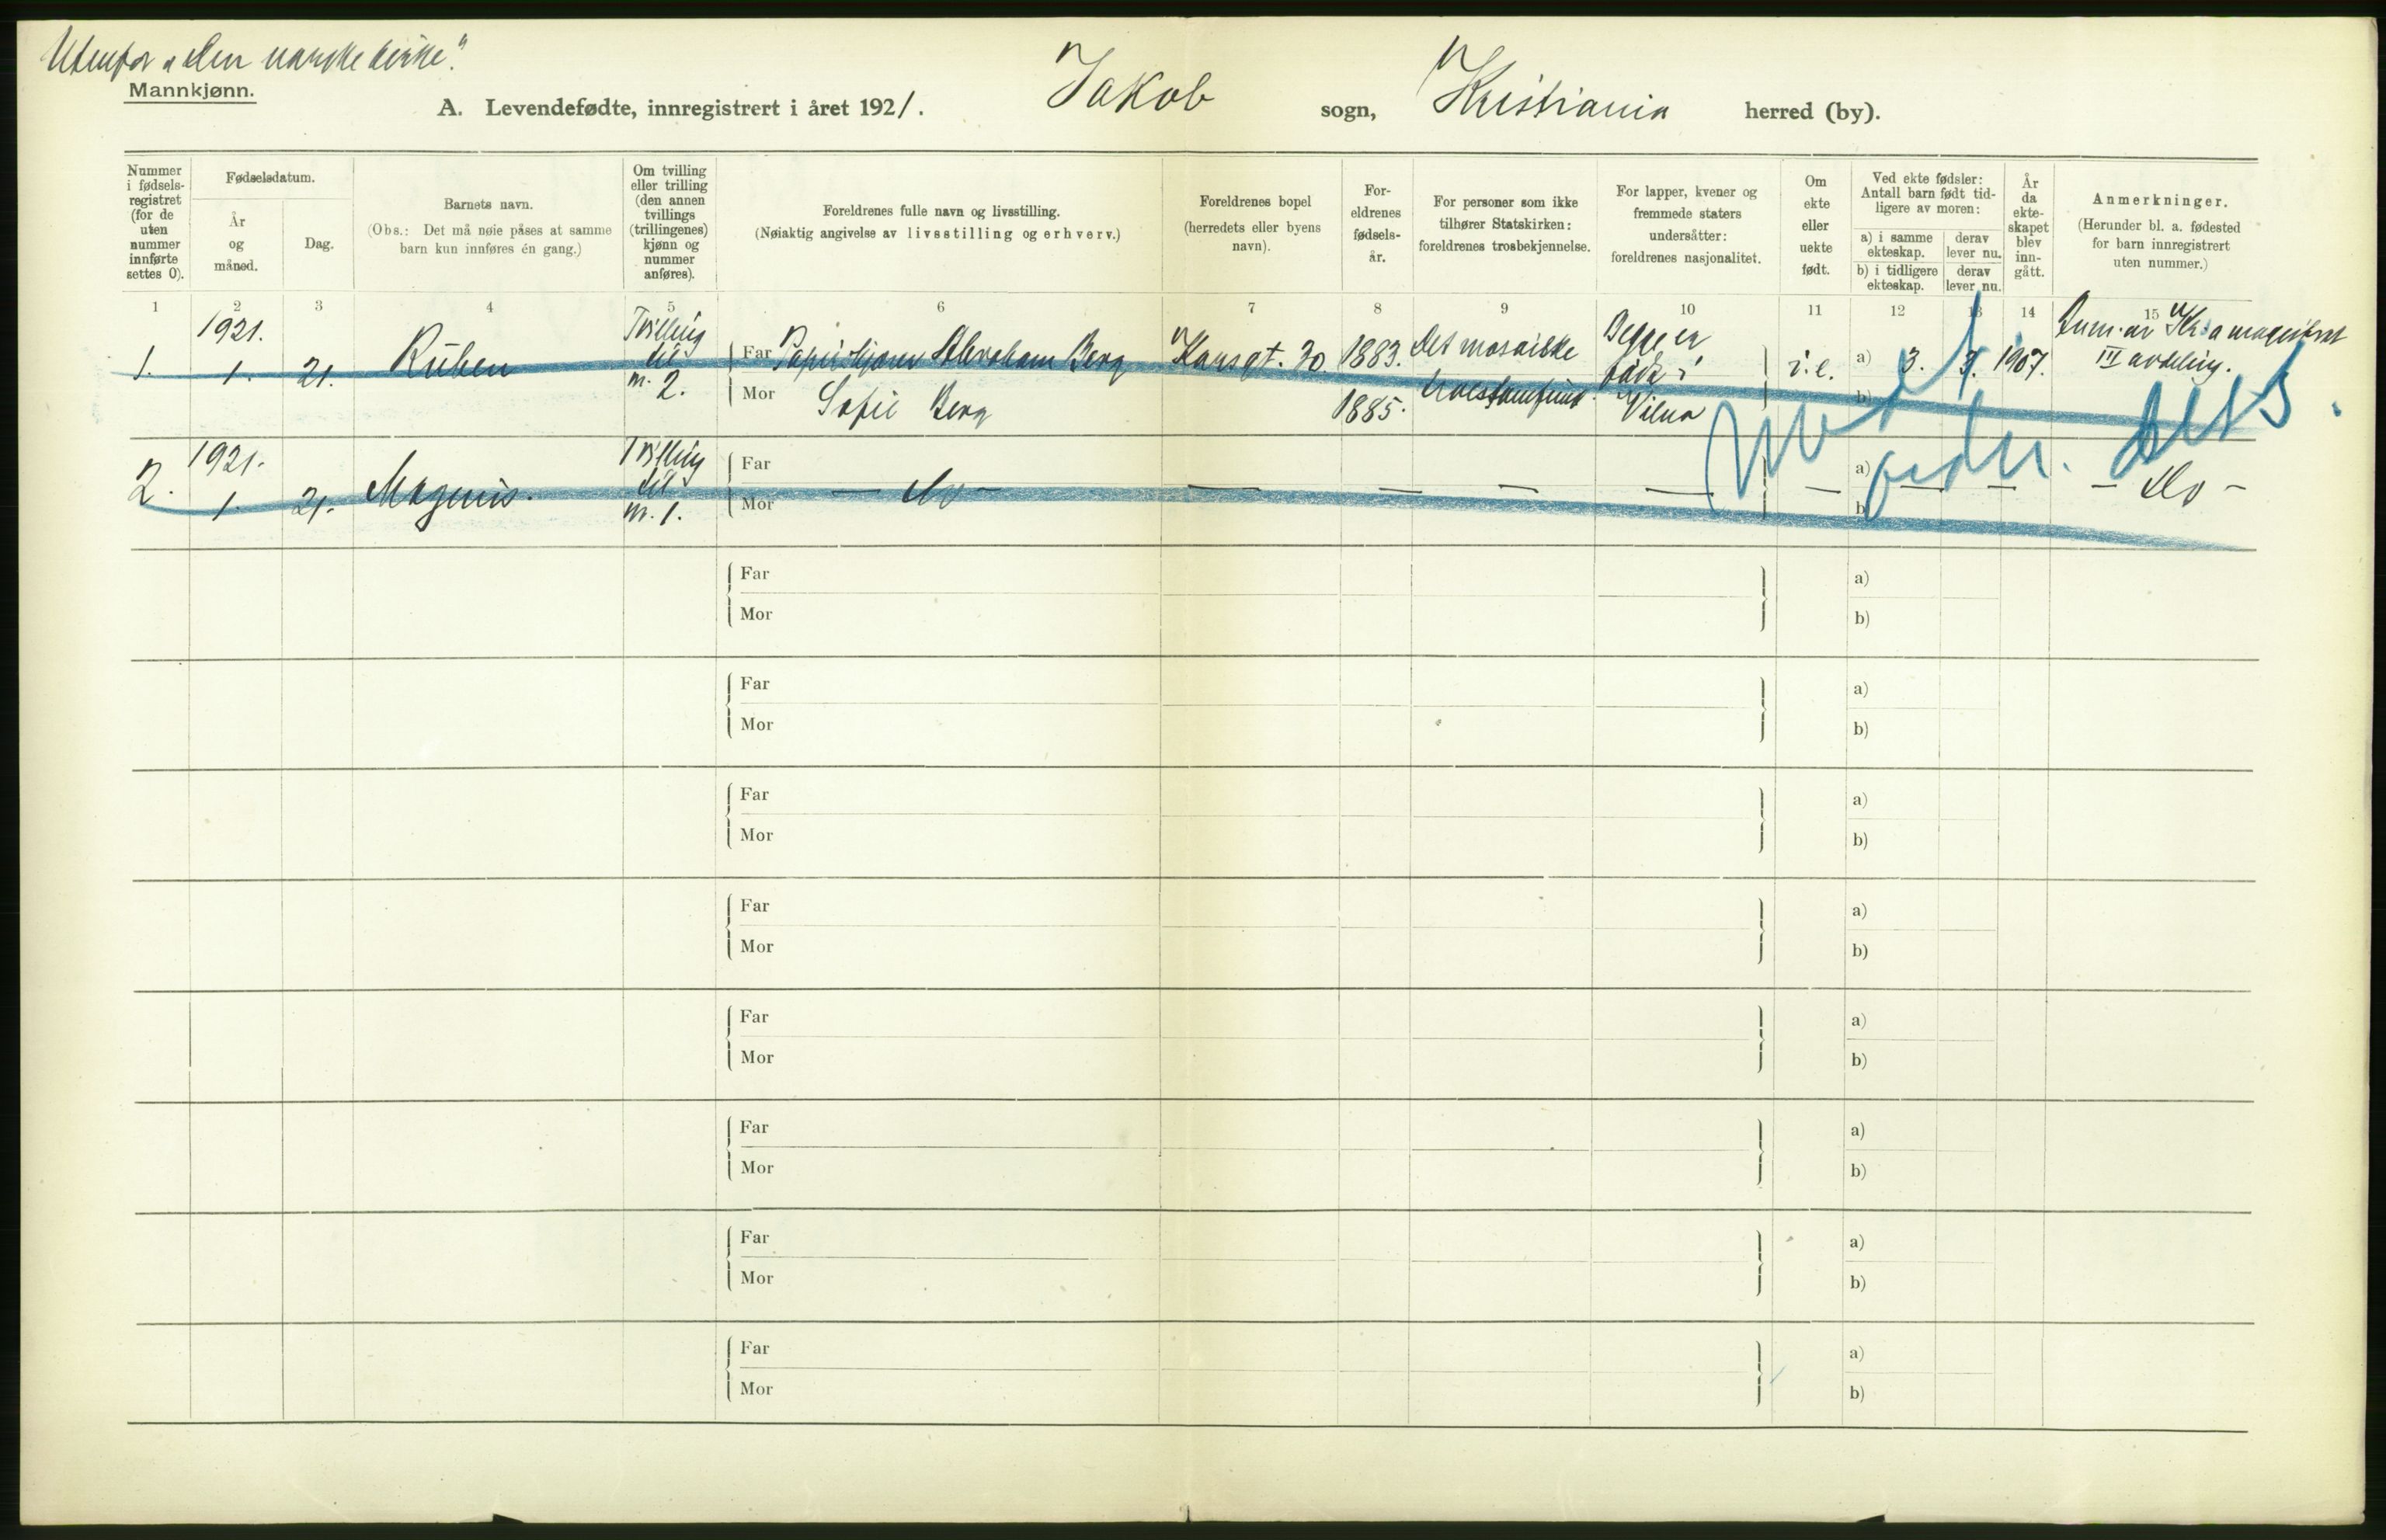 Utenfor „den norske kirke".
Mannkjønn.
A. Levendefødte, innregistrert i året 1921. Jakob sogn, Kristiania herred (by).
Nummer
i fødsels-
registret
(for de
uten
nummer
innførte
settes 0).
Fødselsdatum.
År
og
måned.
Dag.
Barnets navn.
(Obs.: Det må nøie påses at samme
barn kun innføres én gang.)
Om tvilling
eller trilling
(den annen
tvillings
(trillingenes)
kjønn og
nummer
anføres).
Foreldrenes fulle navn og livsstilling.
(Nøiaktig angivelse av livsstilling og erhverv.)
Foreldrenes bopel
(herredets eller byens
navn).
For-
eldrenes
fødsels-
år.
For personer som ikke
tilhører Statskirken:
foreldrenes trosbekjennelse.
For lapper, kvener og
fremmede staters
undersåtter:
foreldrenes nasjonalitet.
Om
ekte
eller
uekte
født.
Ved ekte fødsler:
Antall barn født tid-
ligere av moren:
a) i samme
ekteskap.
derav
lever nu.
b) i tidligere
ekteskap.
derav
lever nu.
År
da
ekte-
skapet
blev
inn-
gått.
Anmerkninger.
(Herunder bl. a. fødested
for barn innregistrert
uten nummer.)
1 2 3 4 5 6 7 8 9 10 11 12 13 14 15
1. 1921. 1. 21. Ruben
Tvilling
til
m. 2.
Far Abraham Berg
Mor Sofie Berg
Karsgt. 20
1883.
1885.
Det mosaiske
trossamfund.
Begge er
født i
Vilna
i. e.
a) 3. 3.
b)
1907.
Anm. av Kr.a magistrat
III avdeling.
2. 1921. 1. 21. Magnus.
Tvilling
til
m. 1.
Far
Mor
— do —
— — — — — a) — — — do —
b)
Far a)
Mor b)
Far a)
Mor b)
Far a)
Mor b)
Far a)
Mor b)
Far a)
Mor b)
Far a)
Mor b)
Far a)
Mor b)
Far a)
Mor b)